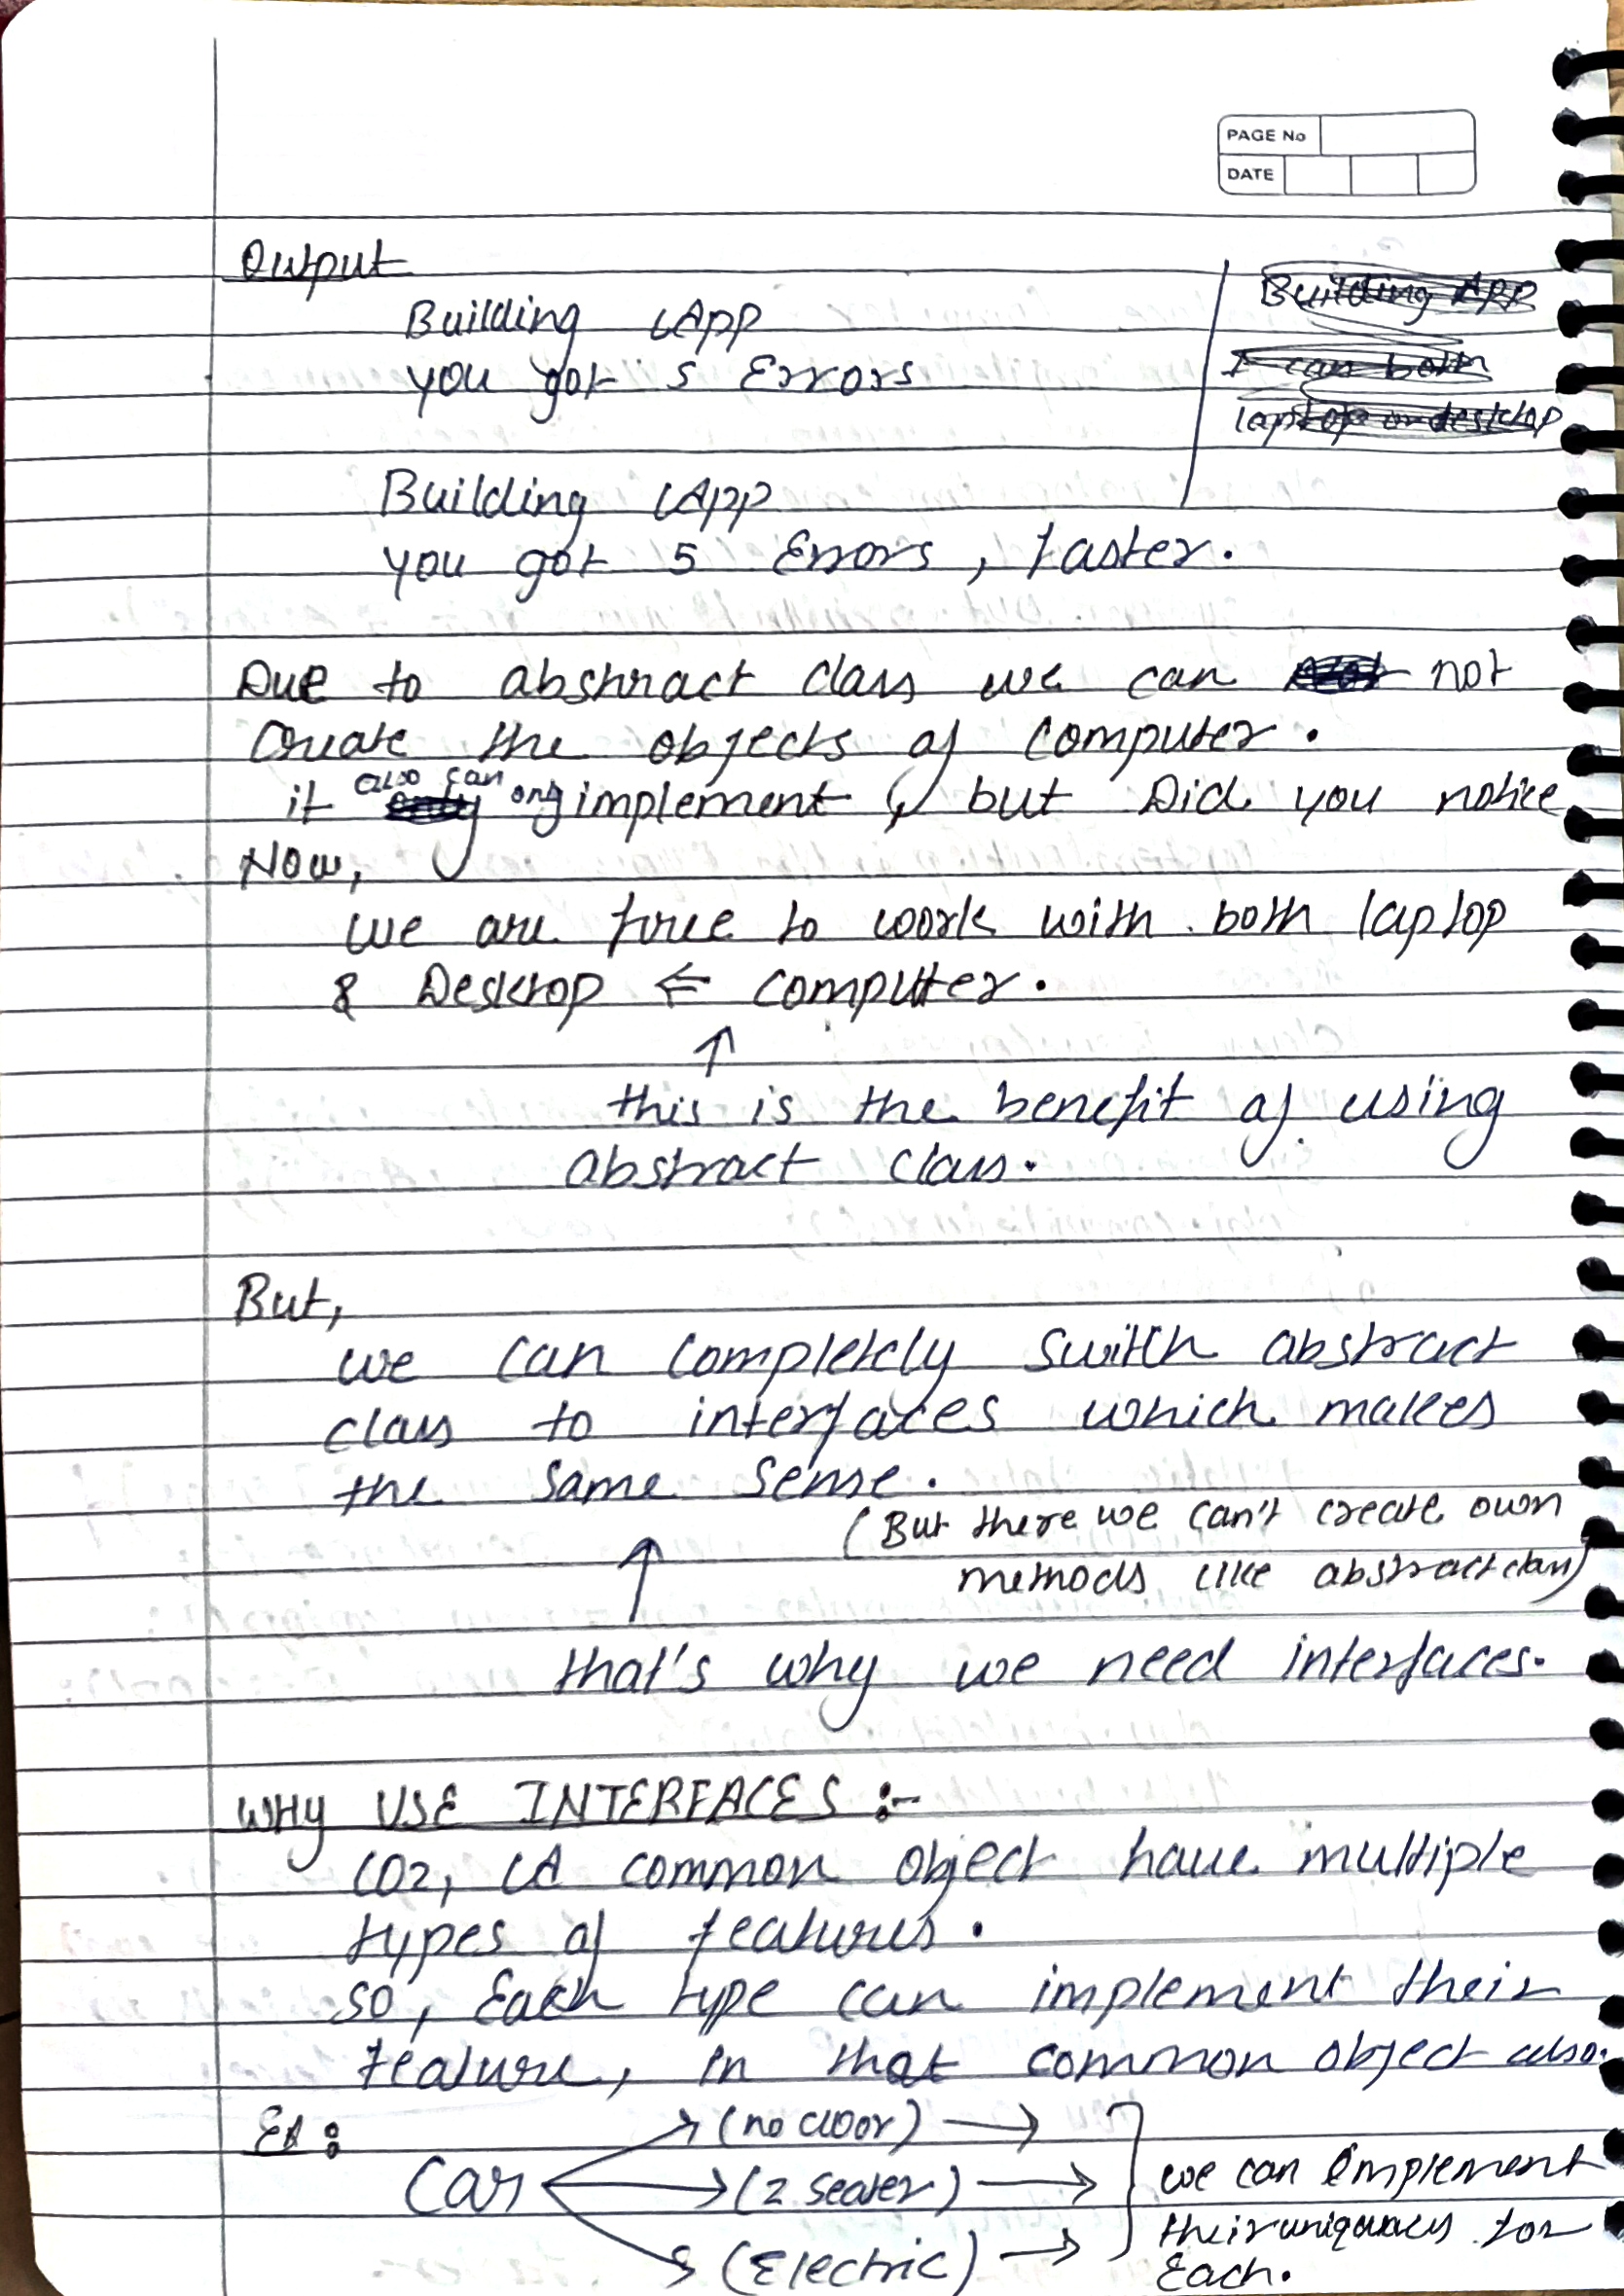 PAGE No
DATE
Output
Building App
you got 5 Errors
Building App
I can both
laptop or desktop
Building App
you got 5 Errors, faster.
Due to abstract class we can not
Create the objects of computer.
it also can only implement, but Did you notice
Now,
we are free to work with both laptop
& Desktop ⇐ computer.
↑
this is the benefit of using
abstract class.
But,
we can completely switch abstract
class to interfaces which makes
the same sense.
(But there we can't create own
methods like abstract class)
↑
that's why we need interfaces.
WHY USE INTERFACES :-
Coz, A common object have multiple
types of features.
so, Each type can implement their
feature, in that common object also.
Ex:
Car → (no door) →
→ (2 seater) →
→ (Electric) →
we can implement
their uniqueness for
Each.